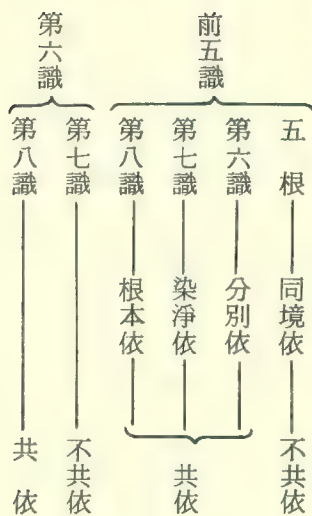 前五識
五根 同境依 不共依
第六識 分別依
第七識 染淨依
第八識 根本依
共依
第六識
第七識 不共依
第八識 共依